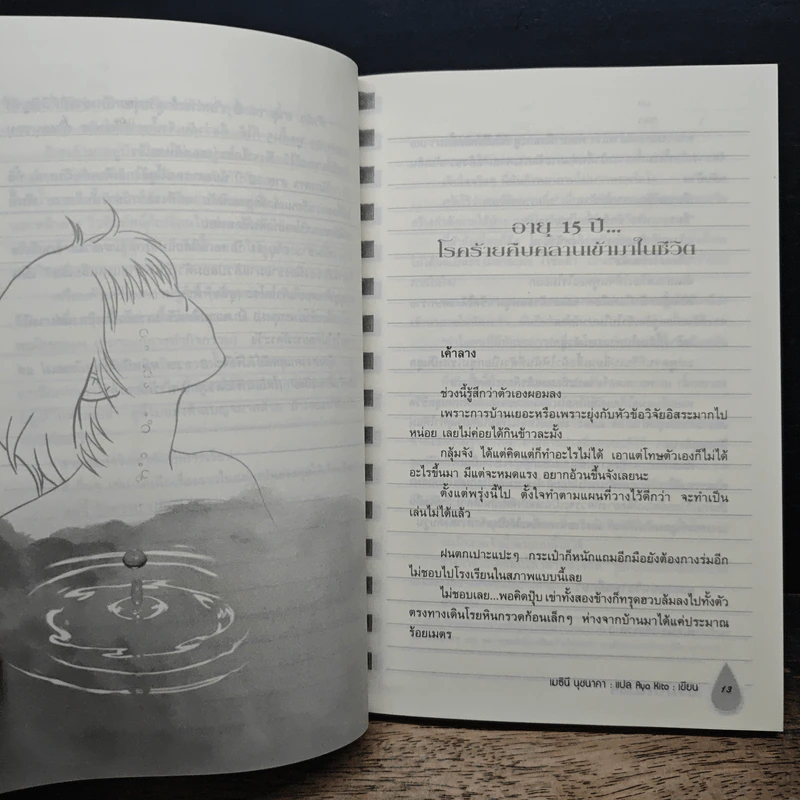 อายุ 15 ปี...
โรคร้ายคืบคลานเข้ามาในชีวิต
เค้าลาง
ช่วงนี้รู้สึกว่าตัวเองผอมลง
เพราะการบ้านเยอะหรือเพราะยุ่งกับหัวข้อวิจัยอิสระมากไป
หน่อย เลยไม่ค่อยได้กินข้าวละมั้ง
กลุ้มจัง ได้แต่คิดแต่ก็ทำอะไรไม่ได้ เอาแต่โทษตัวเองก็ไม่ได้
อะไรขึ้นมา มีแต่จะหมดแรง อยากอ้วนขึ้นจังเลยนะ
ตั้งแต่พรุ่งนี้ไป ตั้งใจทำตามแผนที่วางไว้ดีกว่า จะทำเป็น
เล่นไม่ได้แล้ว
ฝนตกเปาะแปะๆ กระเป๋าก็หนักแถมอีกมือยังต้องกางร่มอีก
ไม่ชอบไปโรงเรียนในสภาพแบบนี้เลย
ไม่ชอบเลย...พอคิดปุ๊บ เข่าทั้งสองข้างก็ทรุดฮวบล้มลงไปทั้งตัว
ตรงทางเดินโรยหินกรวดก้อนเล็กๆ ห่างจากบ้านมาได้แค่ประมาณ
ร้อยเมตร
เมธินี นุชนาคา : แปล Aya Kito : เขียน 13